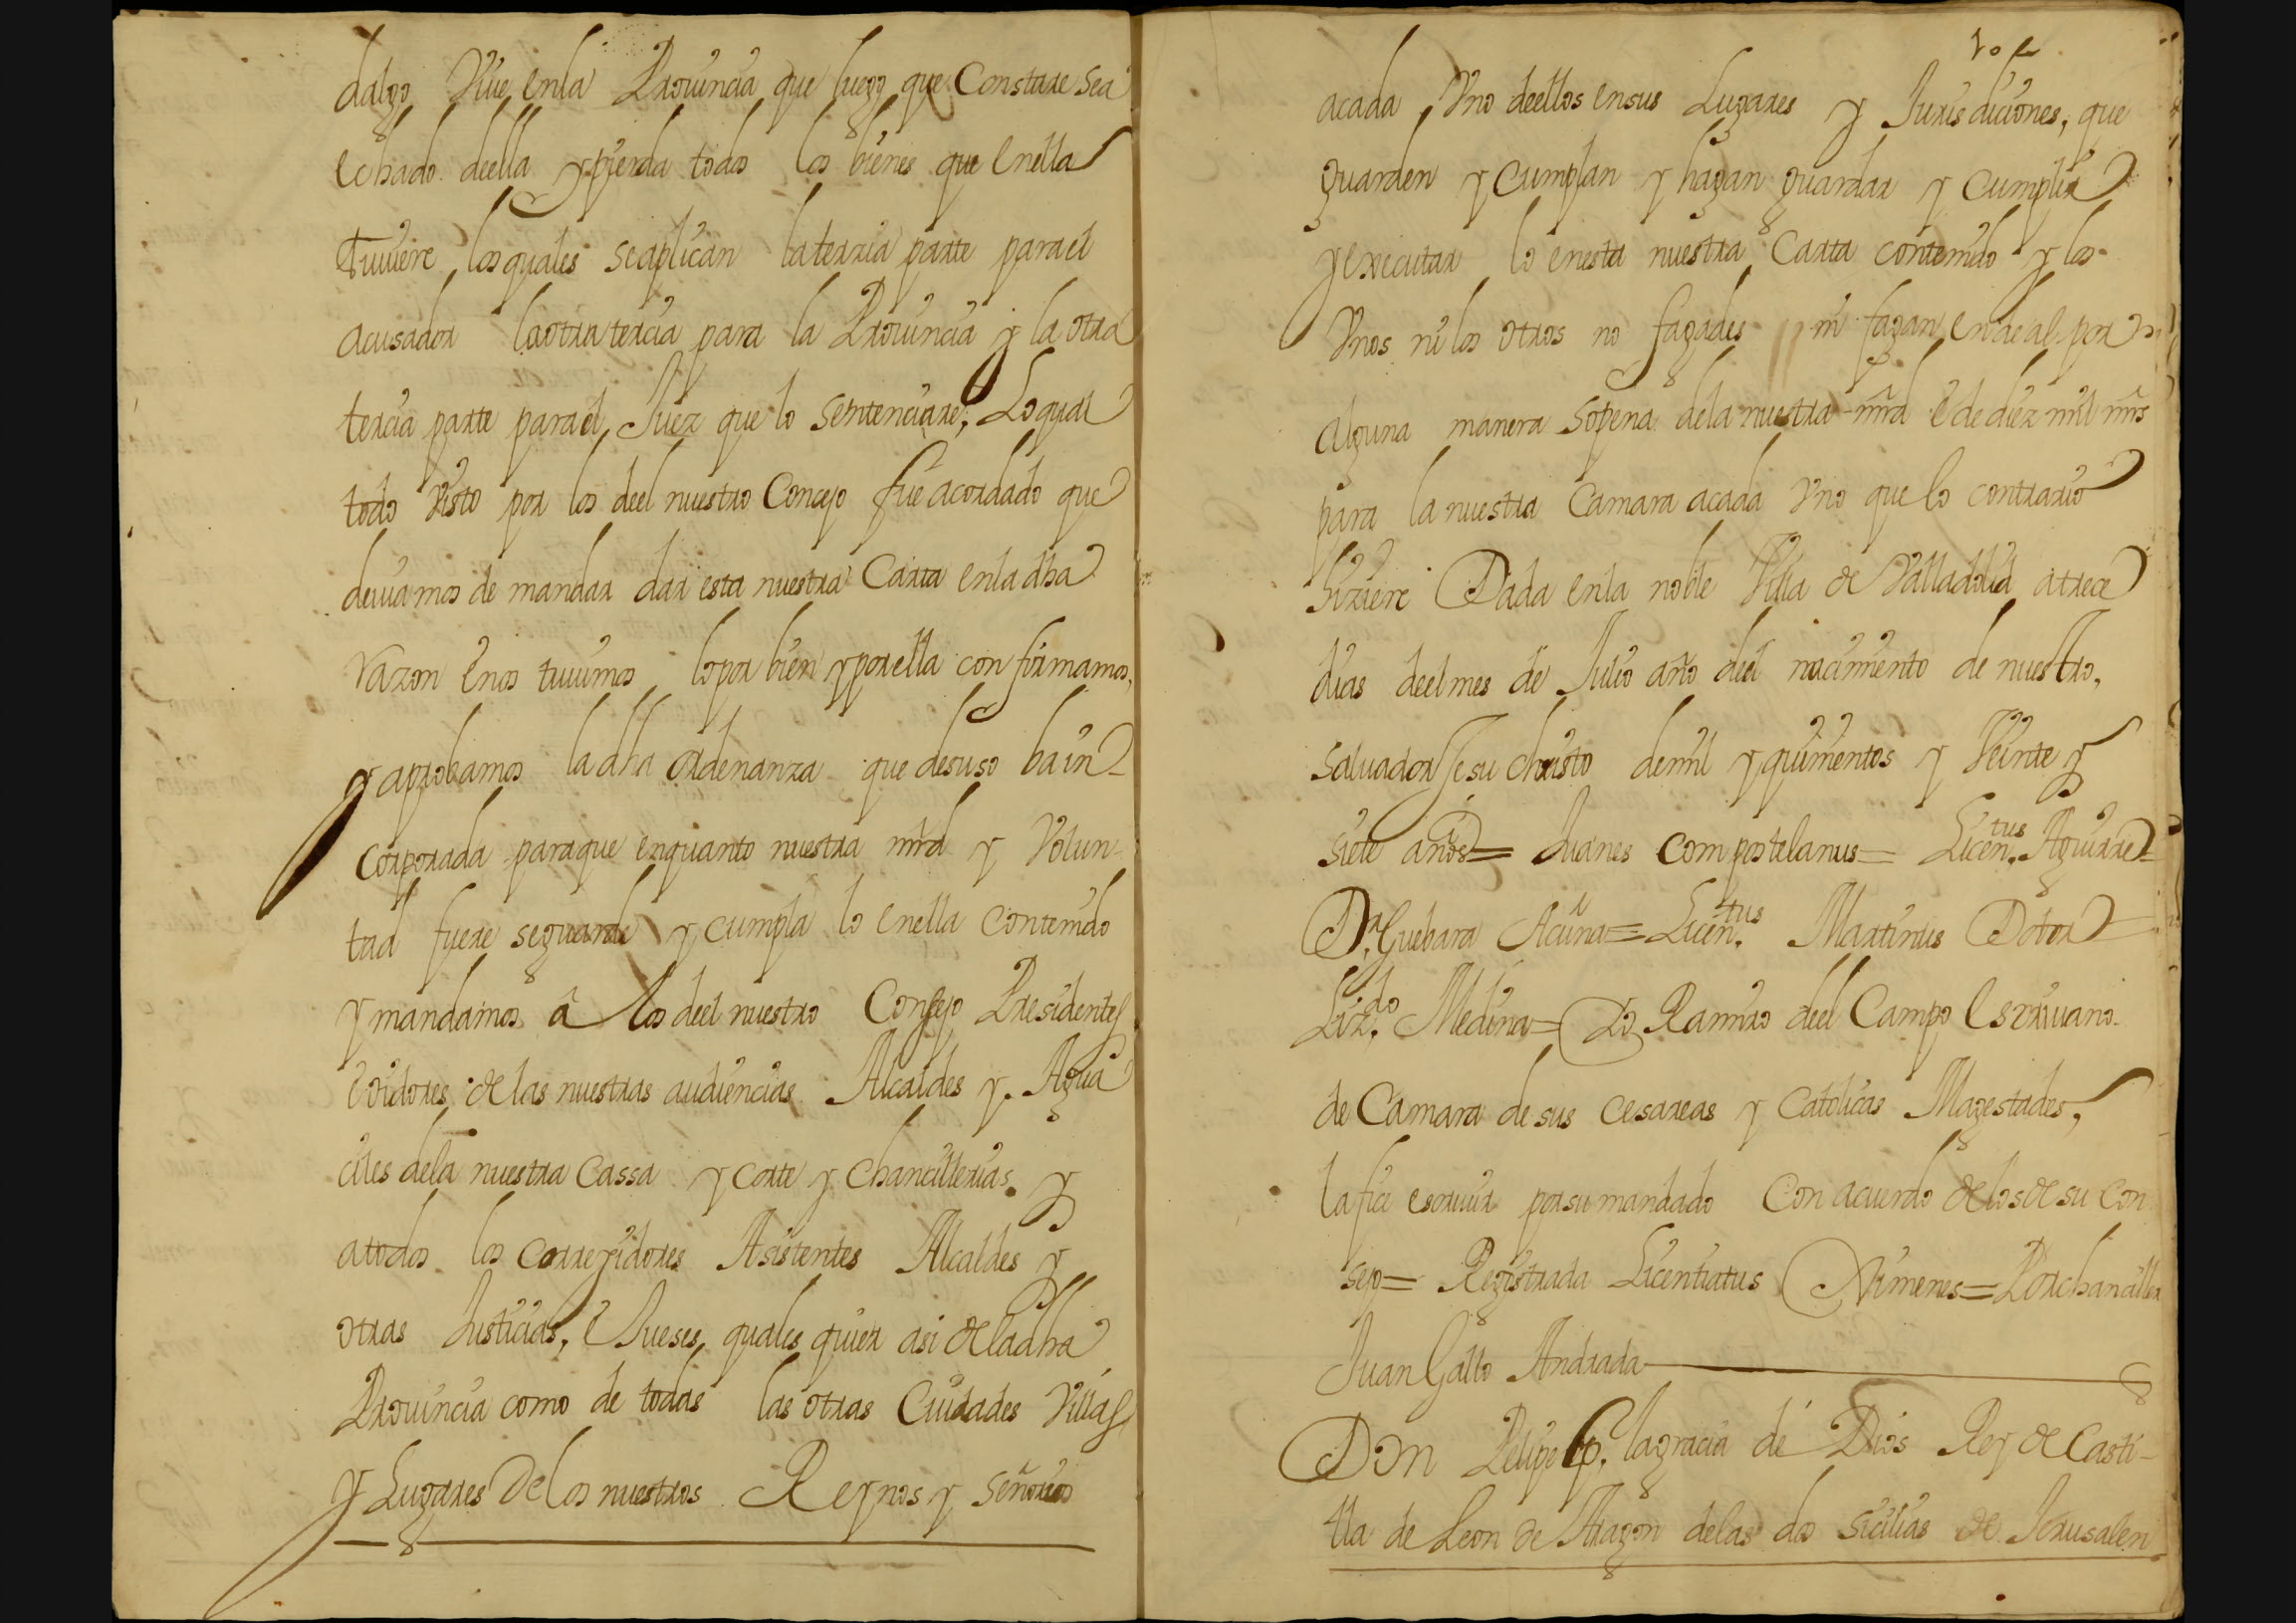 dalgo Viue enla Prouincia que luego que Constare sea
echado deella y pierda todos los bienes que enella
Tuuiere los quales seaplican laterzia parte parael
acusador laotra tercia para la Prouincia y la otra
tercia parte parael Juez que lo sentenciare, Loqual
todo Visto por los deel nuestro Concejo fue acordado que
deuiamos de mandar dar esta nuestra Carta enla dha
razon enos tuuimos lopor bien yporella confirmamos,
y aprobamos la dha ordenanza que desuso ba in-
corporada paraque enquanto nuestra mrd y Volun-
tad fuere seguarde y cumpla lo enella Contenido
y mandamos â los deel nuestro Consejo Presidentes
eoidores de las nuestras audiencias Alcaldes y Agua
ciles dela nuestra Cassa y Corte y Chancillerias y
atodos los Corregidores Asistentes Alcaldes y
otras Justicias, e Jueses quales quier asi de ladha
Prouincia como de todas las otras Ciudades Villas
y Lugares De los nuestros Reynos y señorios
acada Vno deellos ensus Lugares y Jurisdiciones, que
guarden y Cumplan y hagan guardar y Cumplir
yexecutar lo enesta nuestra Carta contenido y los
Vnos ni los otros no fagades ni fagan endeal por
alguna manera sopena dela nuestra mrd e de diez mil mrs
para la nuestra Camara acada Vno que lo contrario
hiziere Dada enla noble Villa de Valladolid atrece
dias deelmes de Julio año deel nacimiento de nuestro,
saluador Jesu christo demil y quinientos y Veinte y
siete años= Juanes Compostelanus= Licen.tus Aguirre=
Dr. Guebara Acuña= Licen.tus Martinus Dotor=
Liz.do Medina= Yo Ramiro deel Campo Escriuano
de Camara de sus Cesareas y Catolicas Magestades,
la fice escriuir porsu mandado Con acuerdo de los de su Con
sejo= Registrada Licentiatus Ximenes= Porchanciller
Juan Gallo Andrada
Don Felipe Por, lagracia de Dios Rey de Casti-
lla de Leon de Aragon delas dos Sicilias de Jerusalen